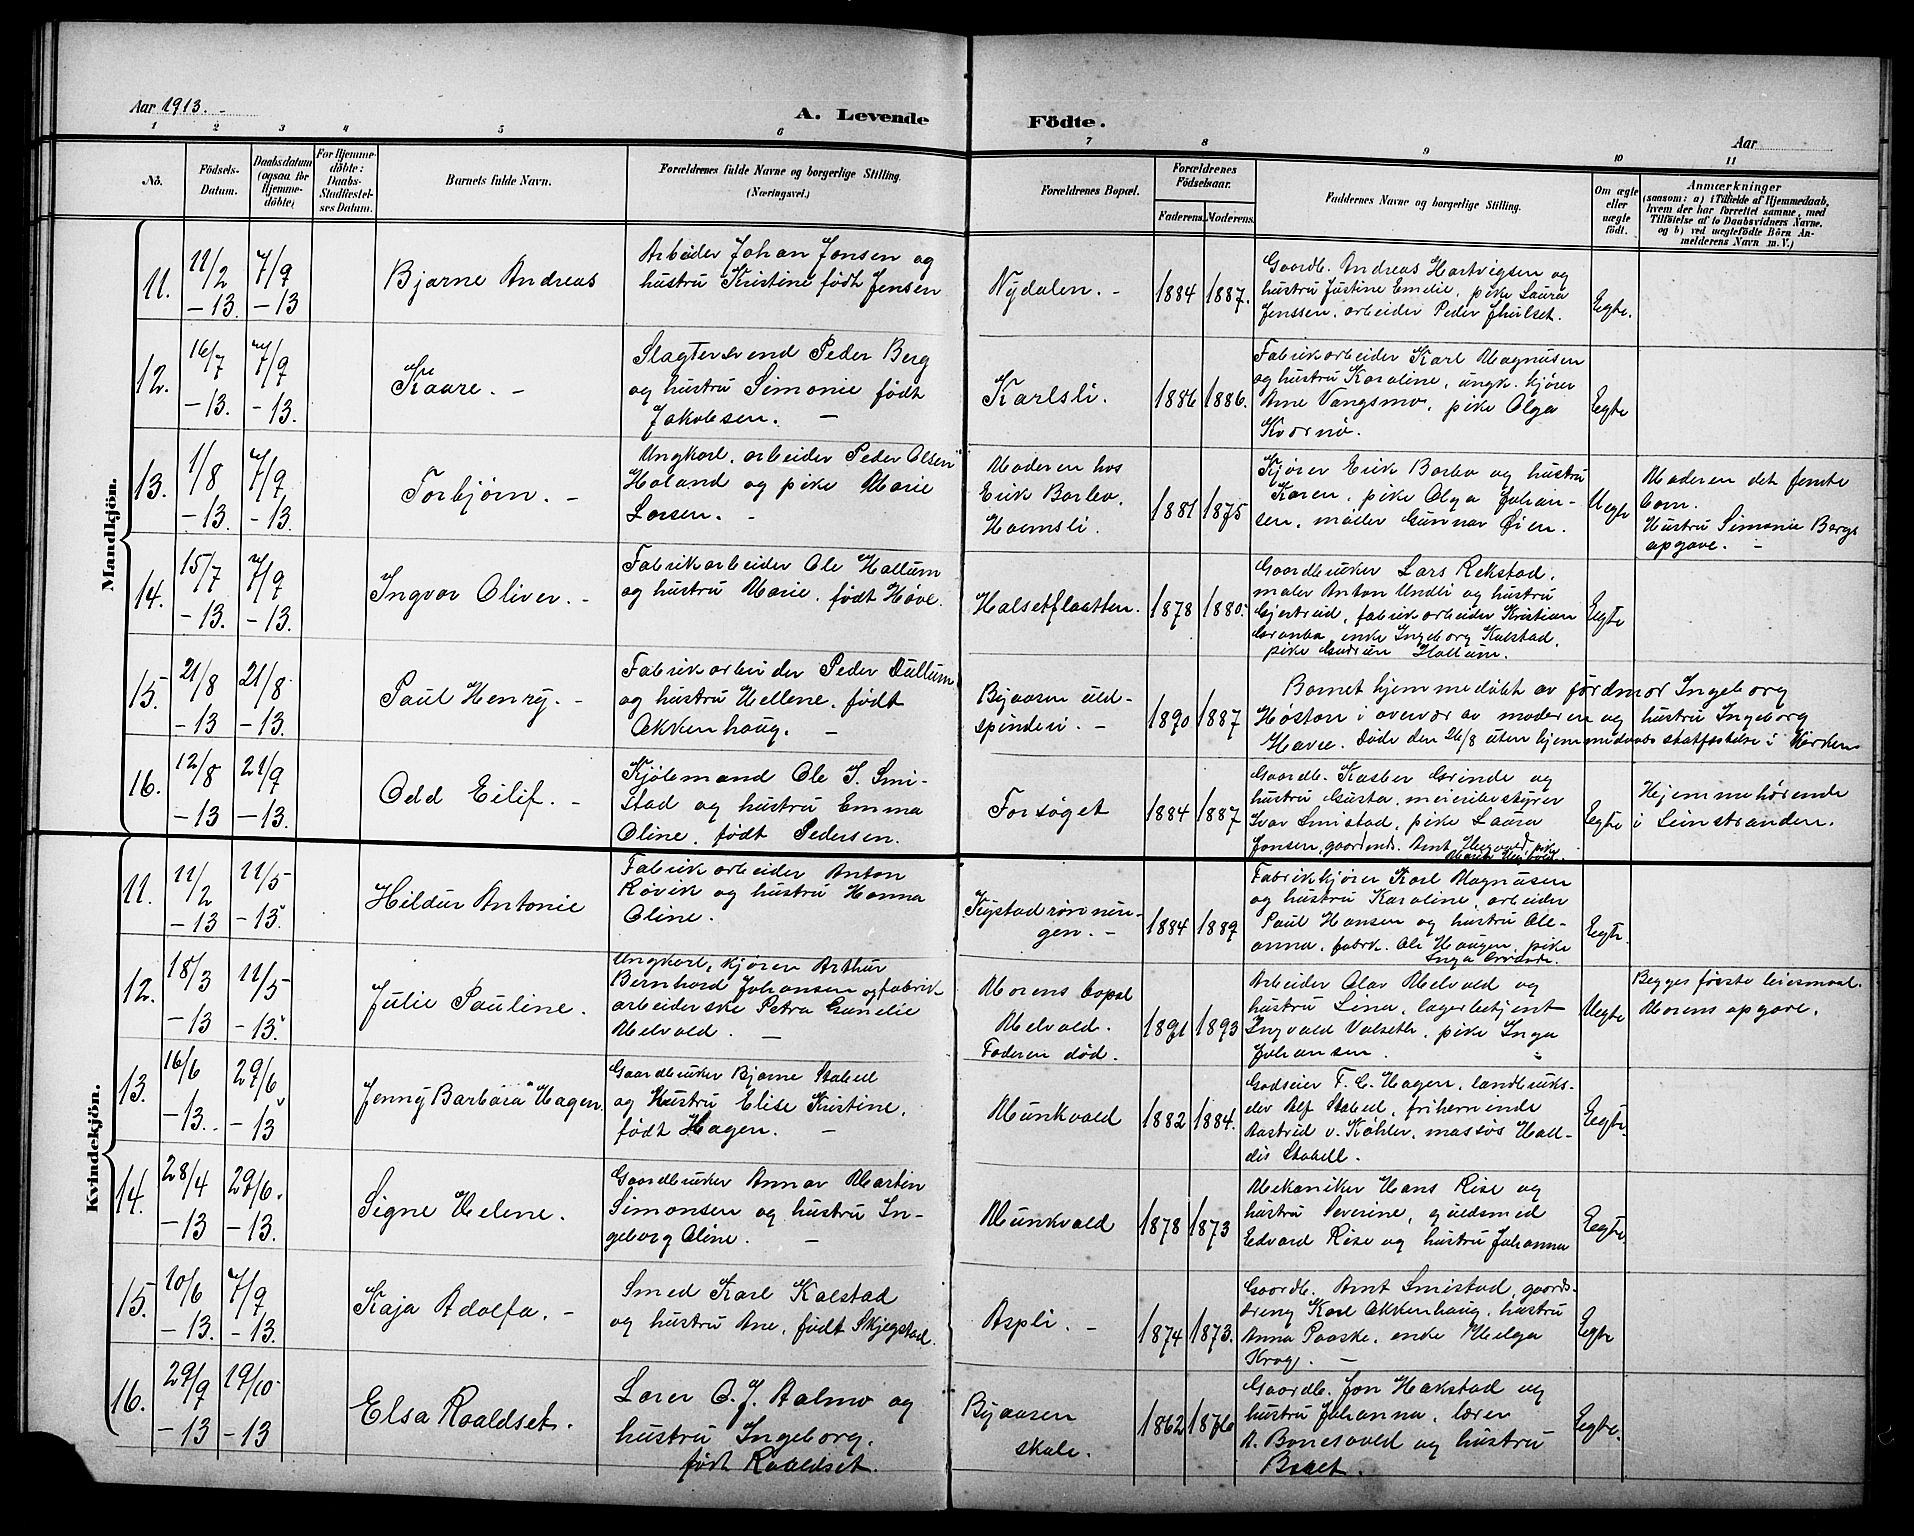 Aar 1913. -
A. Levende Födte.
Aar
1 2 3 4 5 6 7 8 9 10 11
No.
Födsels-Datum.
Daabsdatum (ogsaa for Hjemmedöbte)
For Hjemmedöbte: Daabs-Stadfæstelses Datum.
Barnets fulde Navn.
Forældrenes fulde Navne og borgerlige Stilling. (Næringsvei.)
Forældrenes Bopæl.
Forældrenes Födselsaar.
Faderens. Moderens.
Faddernes Navne og borgerlige Stilling.
Om ægte eller uægte födt.
Anmærkninger
(saasom: a) i Tilfælde af Hjemmedaab,
hvem der har forrettet samme, med
Tilföielse af to Daabsvidners Navne,
og b) ved uægtefödte Börn An-
melderens Navn m. V.)
Mandkjön.
11. 11/2 -13. 7/9 -13
Bjarne Andreas
Arbeider Johan Jonsen og
hustru Kristine født Jensen
Nydalen. -
1884 1887.
Gaardb. Andreas Hartvigsen og
hustru Justine Emelie, pike Laura
Jenssen, arbeider Peder
Ægte.
12. 16/7 -13. 7/9 -13.
Kaare. -
Slagtersvend Peder Berg
og hustru Simonie født
Jakobsen. -
Karlsli.
1886 1886.
Fabrikarbeider Karl Magnusen
og hustru Karoline, ungk. kjører
Arne Vangsmo, pike Olga
Kvernø.
Ægte
13. 1/8 -13. 7/9 -13.
Torbjørn. -
Ungkarl, arbeider Peder Olsen
Haland og pike Marie
Larsen. -
Moderen hos
Erik Barbo.
Hoemsli.
1881 1875
Kjører Erik Barbo og hustru
Karen, pike Olga Johan-
sen, maler Gunnar Øien.
Uegte
Moderen det femte
barn.
Hustru Simonie Bergs
opgave. -
14. 15/7 -13. 7/9 -13.
Ingvar Oliver. -
Fabrikarbeider Ole Hallum
og hustru Marie, født Høve.
Halsetflaatten.
1878 1880.
Gaardbruker Lars Rekstad.
maler Anton Undli og hustru
Gjertrud, fabrikarbeider Kristian
Granbo, enke Ingeborg Kalstad,
pike Gudrun Hallum.
Ægte
15. 21/8 -13 21/8 -13.
Paul Henry. -
Fabrikarbeider Peder Dullum
og hustru Hellene, født
Okkenhaug. -
Byaasen uld-
spinderi. -
1890 1887
Barnet hjemmedøbt av jordmor Ingeborg
Høston i overvær av moderen og hustru Ingeborg
Havee. Døde den 26/8 uten hjemmedaabs statfæstelse i kirken
16. 12/8 -13 21/9 -13.
Odd Eilif. -
Kjølemand Ole J. Smi-
stad og hustru Emma
Oline, født Pedersen.
Forsøget
1884 1887
Gaardb. Kasber Grinde og
hustru Gusta, meieribestyrer
Ivar Smistad, pike Laura
Jonsen, gaardmds. Arnt
Ægte
Hjemmehørende
i Leinstranden.
Kvindekjön.
11. 11/2 -13 11/5 -13
Hildur Antonie
Fabrikarbeider Anton
Røvik og hustru Hanna
Oline.
Kystadrønnin-
gen. -
1884 1889
Fabrikkjører Karl Magnusen
og hustru Karoline, arbeider
Paul Hansen og hustru Ole-
anna, fabrk. Ole Haugen, pike
Ægte.
12. 18/3 -13 11/5 -13
Julie Pauline.
Ungkarl, kjører Arthur
Bernhard Johansen og fabrik
arbeiderske Petra Gunelie
Melvold. -
Morens bopæl
Melvold.
Faderen død.
1891 1893
Arbeider Olav Melvold og
hustru Lina, lagerbetjent
Ingvald Valseth, pike Inga
Johansen.
Uegte
Begges første leiesmaal.
Morens opgave.
13. 16/6 -13. 29/6 -13
Jenny Barbara Hagen
Gaardbruker Bjarne Stabell
og Hustru Elise Kristine,
født Hagen. -
Munkvold
1882 1884.
Godseier F. C. Hagen, landbruks-
elev Alf Stabell, friherreinde
Aastrid v. Køhler, massøs Hall-
dis Stabell.
Ægte.
14. 28/4 -13 29/6. -13.
Signe Helene.
Gaardbruker Annar Martin
Simonsen og hustru In-
geborg Oline. -
Munkvold
1878 1873
Mekaniker Hans Rise og
hustru Severine, guldsmed
Edvard Rise og hustru Johanna
Ægte.
15. 10/6 -13. 7/9 -13.
Kaja Adolfa. -
Smed Karl Kalstad
og hustru Ane, født Skjegstad.
Aspli. -
1874 1873.
Gaardb. Arnt Smistad, gaards-
dreng Karl Okkenhaug, hustru
Anna Paaske, enke Helga
Krog. -
Ægte
16. 29/9 -13 19/10 -13
Elsa Roaldset.
Lærer O. J. Aalmo og
hustru Ingeborg,
født Roaldset.
Byaasen
skole.
1862 1876
Gaardb. Jon Hakstad og
hustru Johanna, lærer
A. Bonesvold og hustru
Beret.
Ægte.